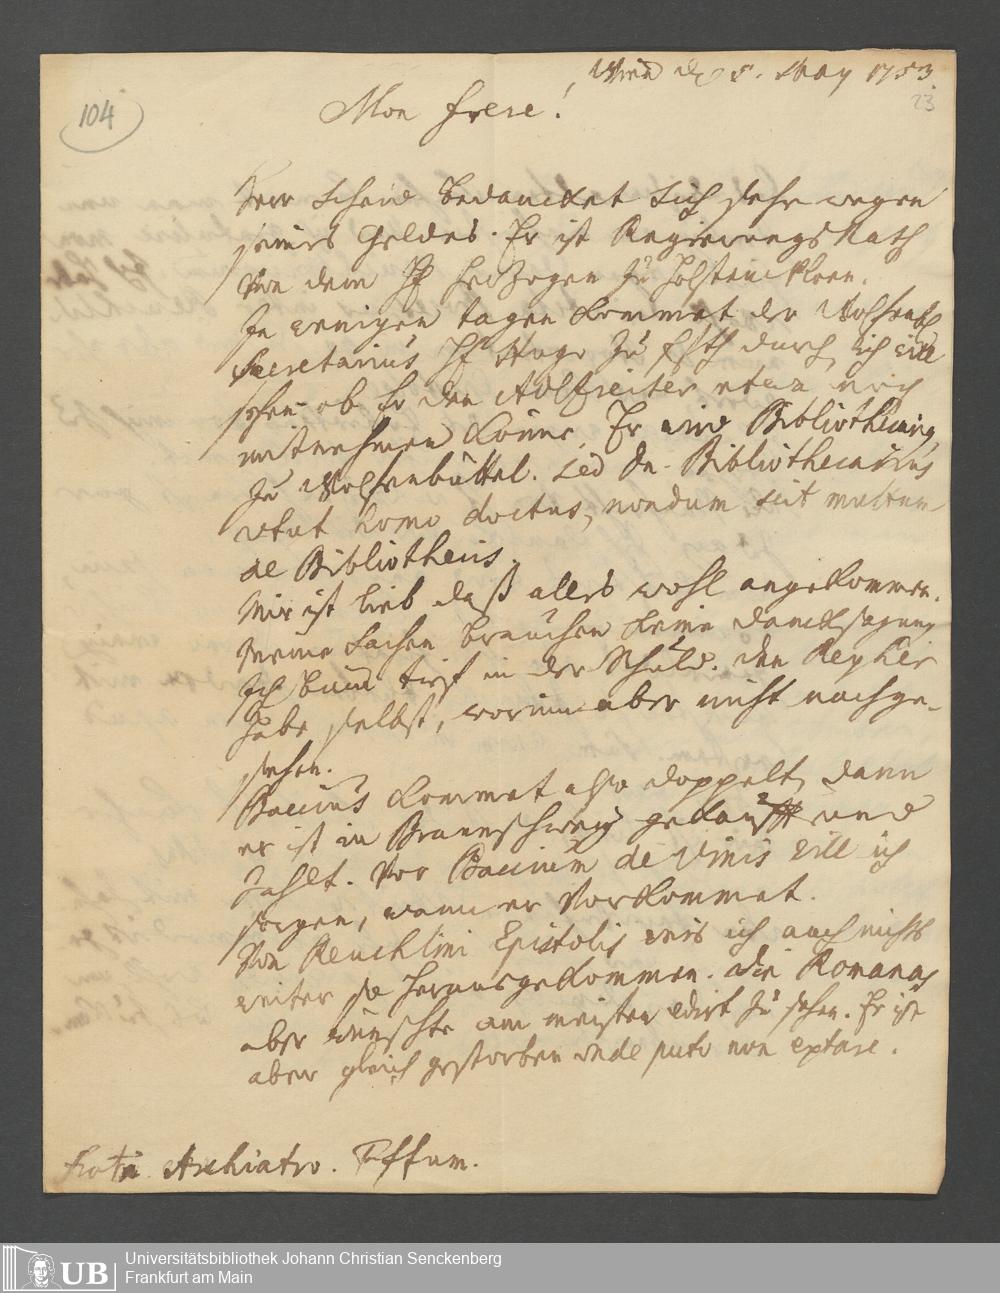 104
Wien d. 5. May 1753
23
Mon frere!
Herr Scheid bedancket sich sehr wegen
seines Geldes. Er ist Regierungs Rath
von dem H. Herzogen zu Holstein Ploen.
In wenigen tagen kommet der
Secretarius H. Hugo zu durch, ich will
sehen ob Er den Adlzreiter etwa
mitnehmen könne. Er wird Bibliothecarius
zu Wolfenbüttel. sed Dn. Bibliothecarius
utut homo doctus, nondum scit multum
de Bibliothecis.
Mir ist lieb daß alles wohl angekommen.
Meine Sachen brauchen keine dancksagung
Ich bin tief in der Schuld. den Reyher
habe selbst, worinn aber nicht nachge-
sehen.
Baccius kommet also doppelt, dann
er ist in Braunschweig gekaufft und
zahlt. Vor Baccium de Vinis will ich
sorgen, wann er vorkommet.
Von Reuchlini Epistolis weis ich auch nichts
weiter so herausgekommen. die Romanas
aber wünschte am meisten edirt zu sehen. Er ist
aber gleich gestorben unde puto non extare.
Archiatro.
Universitätsbibliothek Johann Christian Senckenberg
Frankfurt am Main
UB